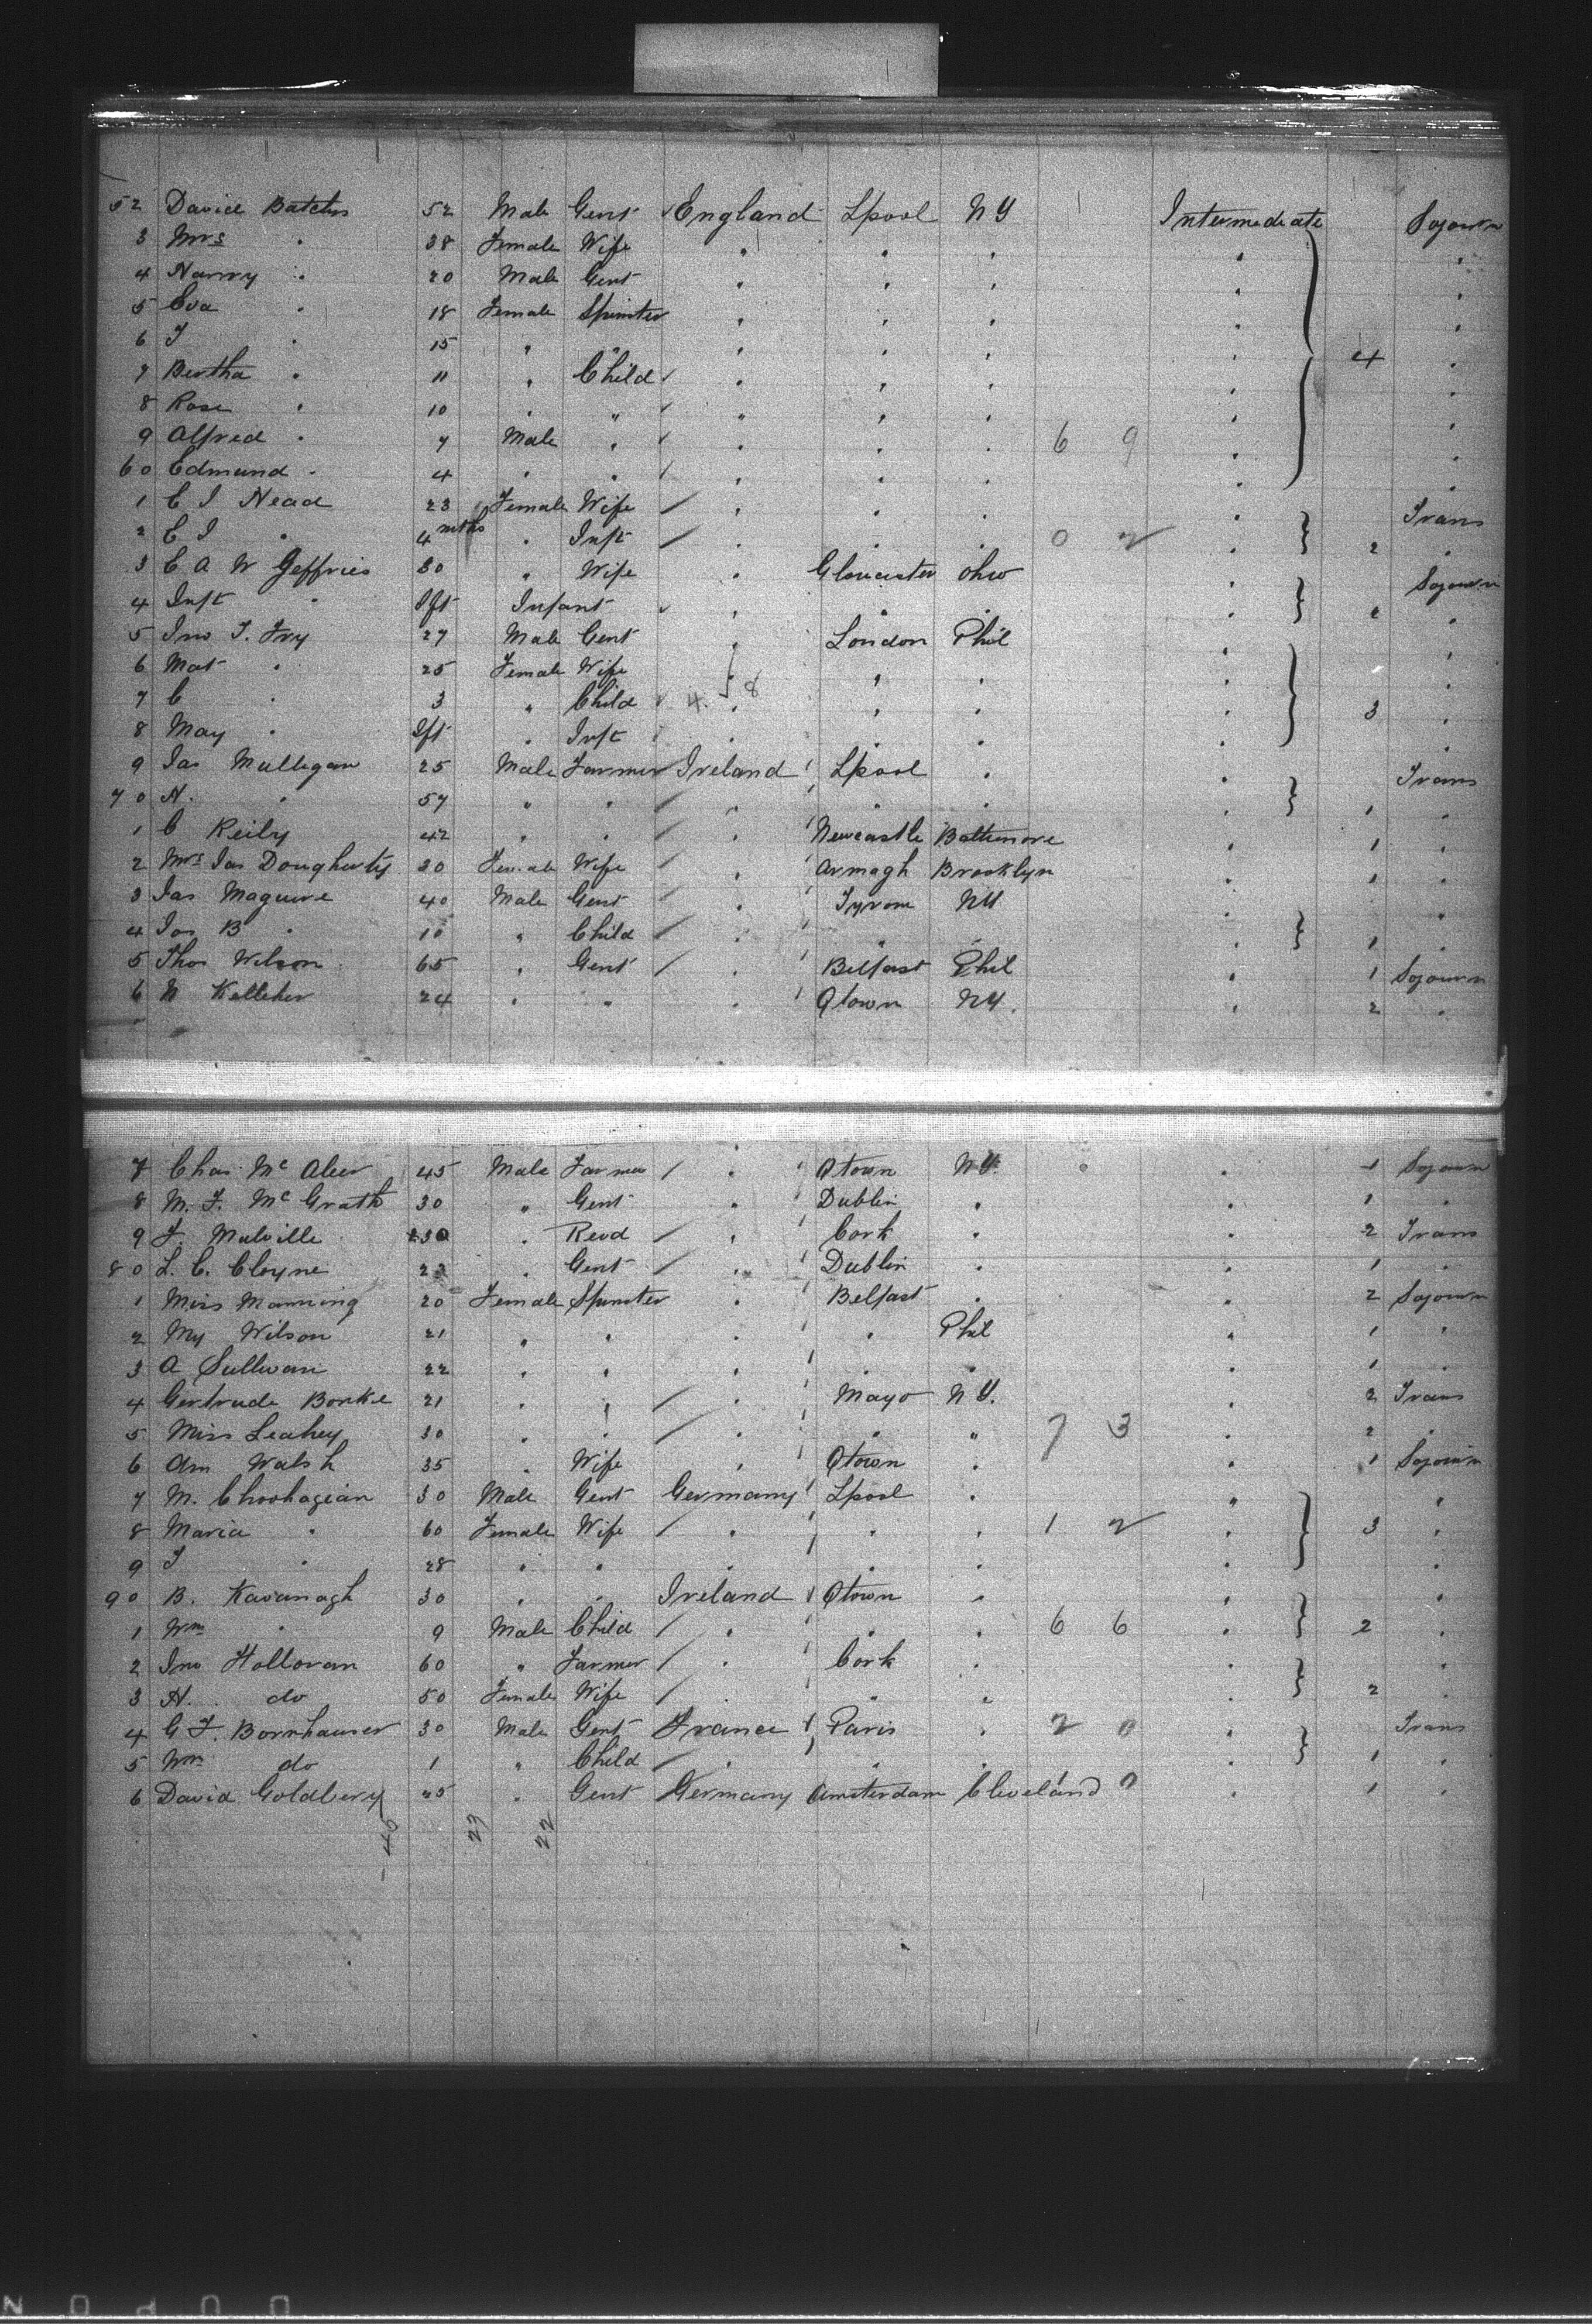 52 David Batchs 52 Male Gent England Lpool NY Intermediate Sojourn
3 Mrs " 38 Female Wife " " " " "
4 Harry " 20 Male Gent " " " " "
5 Eva " 18 Female Spinster " " " " "
6 J " 15 " " " " " " 4 "
7 Bertha " 11 " Child " " " " "
8 Rose " 10 " " " " " " "
9 Alfred " 7 Male " " " " 6 9 " "
60 Edmund " 4 " " " " " " "
1 E J Head 23 Female Wife " " " " Trans
2 E J " 4 mths " Inft " " " 0 2 " 2 "
3 E A W Jeffries 30 " Wife " Gloucester Ohio " Sojourn
4 Inft " Ift Infant " " " " 2 "
5 Jno T. Ivy 27 Male Gent " London Phil " "
6 Mat " 25 Female Wife " " " " "
7 C " 3 " Child 4 8 " " " " 3 "
8 May " Ift " Inft " " " " "
9 Jas Mulligan 25 Male Farmer Ireland Lpool " " Trans
70 H. " 57 " " " " " " 1 "
1 C Reily 42 " " " Newcastle Baltimore " 1 "
2 Mrs Jas Dougherty 30 Female Wife " Armagh Brooklyn " 1 "
3 Jas Maguire 40 Male Gent " Tyrone NY " "
4 Jos B " 10 " Child " " " " 1 "
5 Thos Wilson 65 " Gent " Belfast Phil " 1 Sojourn
6 N Kelleher 24 " " " Qtown NY. " 2 "
7 Chas McAleer 45 Male Farmer " Qtown NY. " 1 Sojourn
8 M. F. McGrath 30 " Gent " Dublin " " 1 "
9 F. Malville 30 " Revd " Cork " " 2 Trans
80 L. C. Cloyne 23 " Gent " Dublin " " 1 "
1 Miss Manning 20 Female Spinster " Belfast " " 2 Sojourn
2 My Wilson 21 " " " " Phil " 1 "
3 A Sullivan 22 " " " " " " 1 "
4 Gertrude Borke 21 " " " Mayo NY. " 2 Trans
5 Miss Leahey 30 " " " " " 7 3 " 2 "
6 Am Walsh 35 " Wife " Qtown " " 1 Sojourn
7 M. Choohagian 30 Male Gent Germany Lpool " " "
8 Maria " 60 Female Wife " " " 1 2 " 3 "
9 J " 28 " " " " " " "
90 B. Kavanagh 30 " " Ireland Qtown " " "
1 Wm " 9 Male Child " " " 6 6 " 2 "
2 Jno Holloran 60 " Farmer " Cork " " "
3 H. do 50 Female Wife " " " " 2 "
4 G F. Bornhauser 30 Male Gent France Paris " 2 0 " Trans
5 Wm do 1 " Child " " " " 1 "
6 David Goldbery 25 " Gent Germany Amsterdam Cleveland " 1 "
29 22